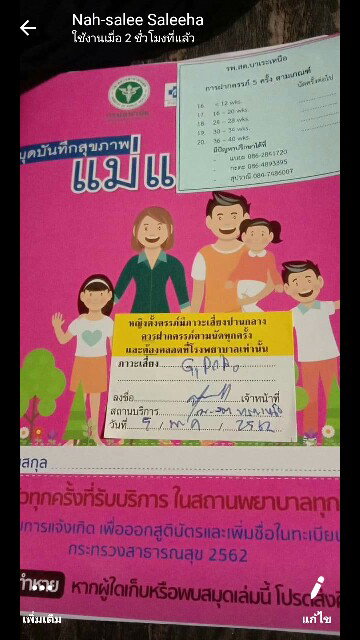 Nah-salee Saleeha
ใช้งานเมื่อ 2 ชั่วโมงที่แล้ว
รพ.สต.บาเระเหนือ
การฝากครรภ์ 5 ครั้ง ตามเกณฑ์
นัดครั้งต่อไป
16. < 12 wks.
17. 16 - 20 wks.
18. 24 - 28 wks.
19. 30 - 34 wks.
20. 36 - 40 wks.
มีปัญหาปรึกษาได้ที่
086-2851720
086-4893395
สุปราณี 084-7486007
มุดบันทึกสุขภาพ
แม่แ
หญิงตั้งครรภ์มีภาวะเสี่ยงปานกลาง
ควรฝากครรภ์ตามนัดทุกครั้ง
และต้องคลอดที่โรงพยาบาลเท่านั้น
ภาวะเสี่ยง G1P0A0
ลงชื่อ เจ้าหน้าที่
สถานบริการ
วันที่ 9 / พ.ค / 2562
สกุล
ัวทุกครั้งที่รับบริการ ในสถานพยาบาลทุก
การแจ้งเกิด เพื่อออกสูติบัตรและเพิ่มชื่อในทะเบีย
กระทรวงสาธารณสุข 2562
ำหาย หากผู้ใดเก็บหรือพบสมุดเล่มนี้ โปรดส่งคื
เพิ่มเติม
แก้ไข